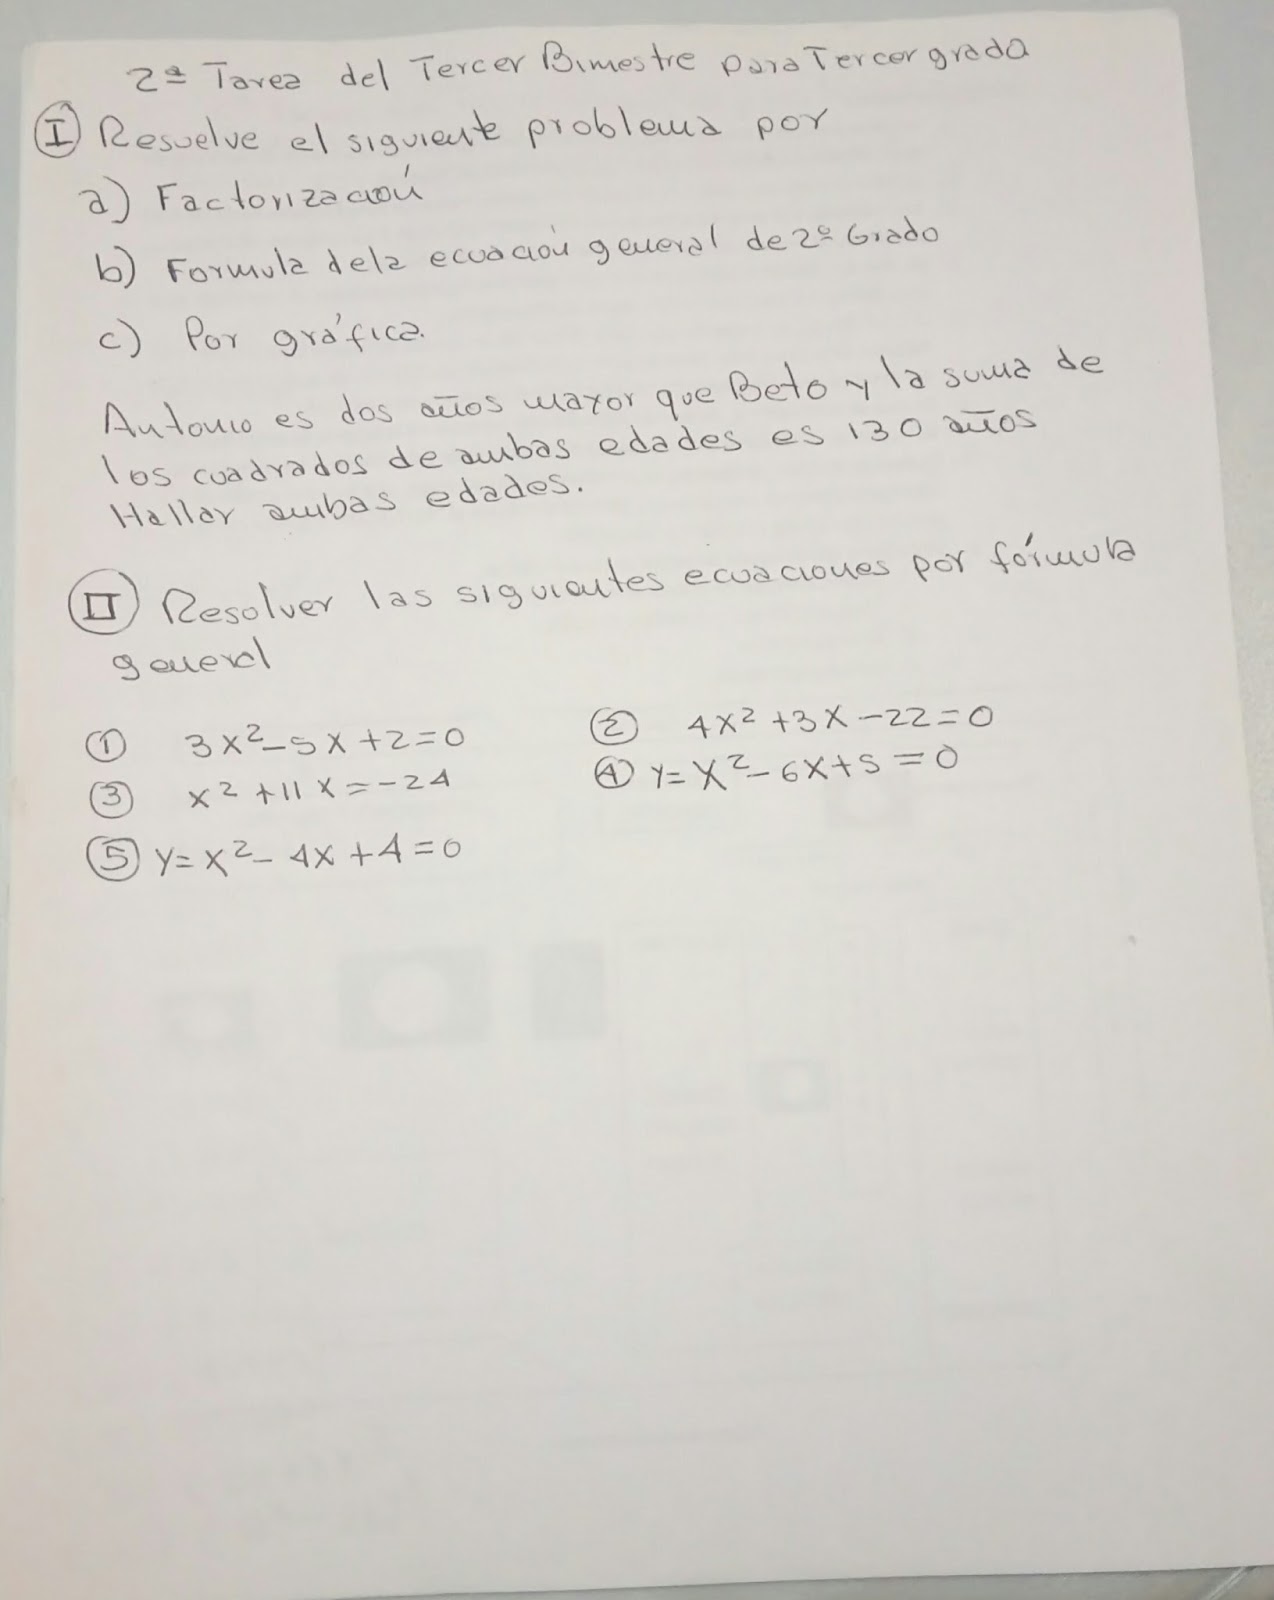 2ª Tarea del Tercer Bimestre para Tercer grado
I Resuelve el siguiente problema por
a) Factorización
b) Formula dela ecuación general de 2º Grado
c) Por gráfica.
Antonio es dos años mayor que Beto y la suma de
los cuadrados de ambas edades es 130 años
Hallar ambas edades.
II Resolver las siguientes ecuaciones por fórmula
general
① 3x²-5x+2=0 ② 4x²+3x-22=0
③ x²+11x=-24 ④ y=x²-6x+5=0
⑤ y=x²-4x+4=0